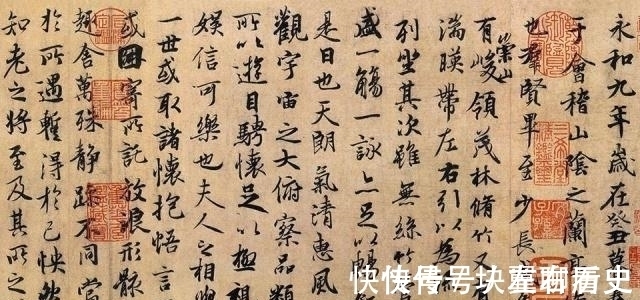 永和九年歲在癸丑暮
于會稽山陰之蘭亭
也羣賢畢至少長
有崇山峻領茂林脩竹又
湍暎帶左右引以為
列坐其次雖無絲竹
盛一觴一詠亦足以暢
是日也天朗氣清惠風
觀宇宙之大俯察品類
所以遊目騁懷足以極視
娛信可樂也夫人之相與
一世或取諸懷抱悟言
或因寄所託放浪形骸
趣舍萬殊靜躁不同當
於所遇蹔得於己怏然
知老之將至及其所之